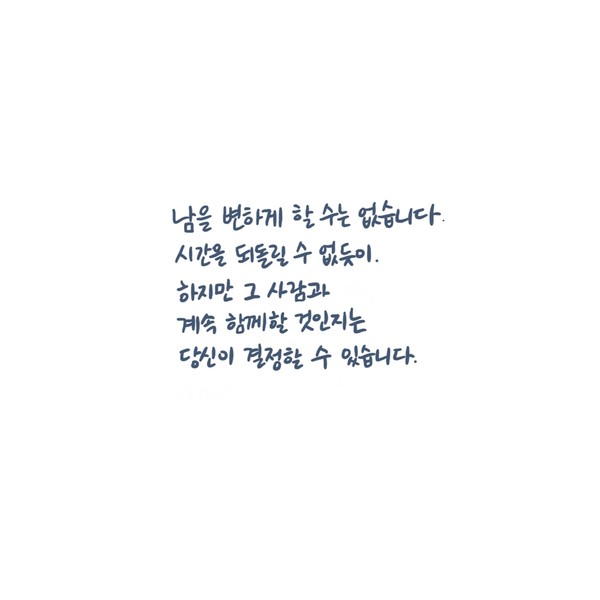 남을 변하게 할 수는 없습니다.
시간을 되돌릴 수 없듯이.
하지만 그 사람과
계속 함께할 것인지는
당신이 결정할 수 있습니다.